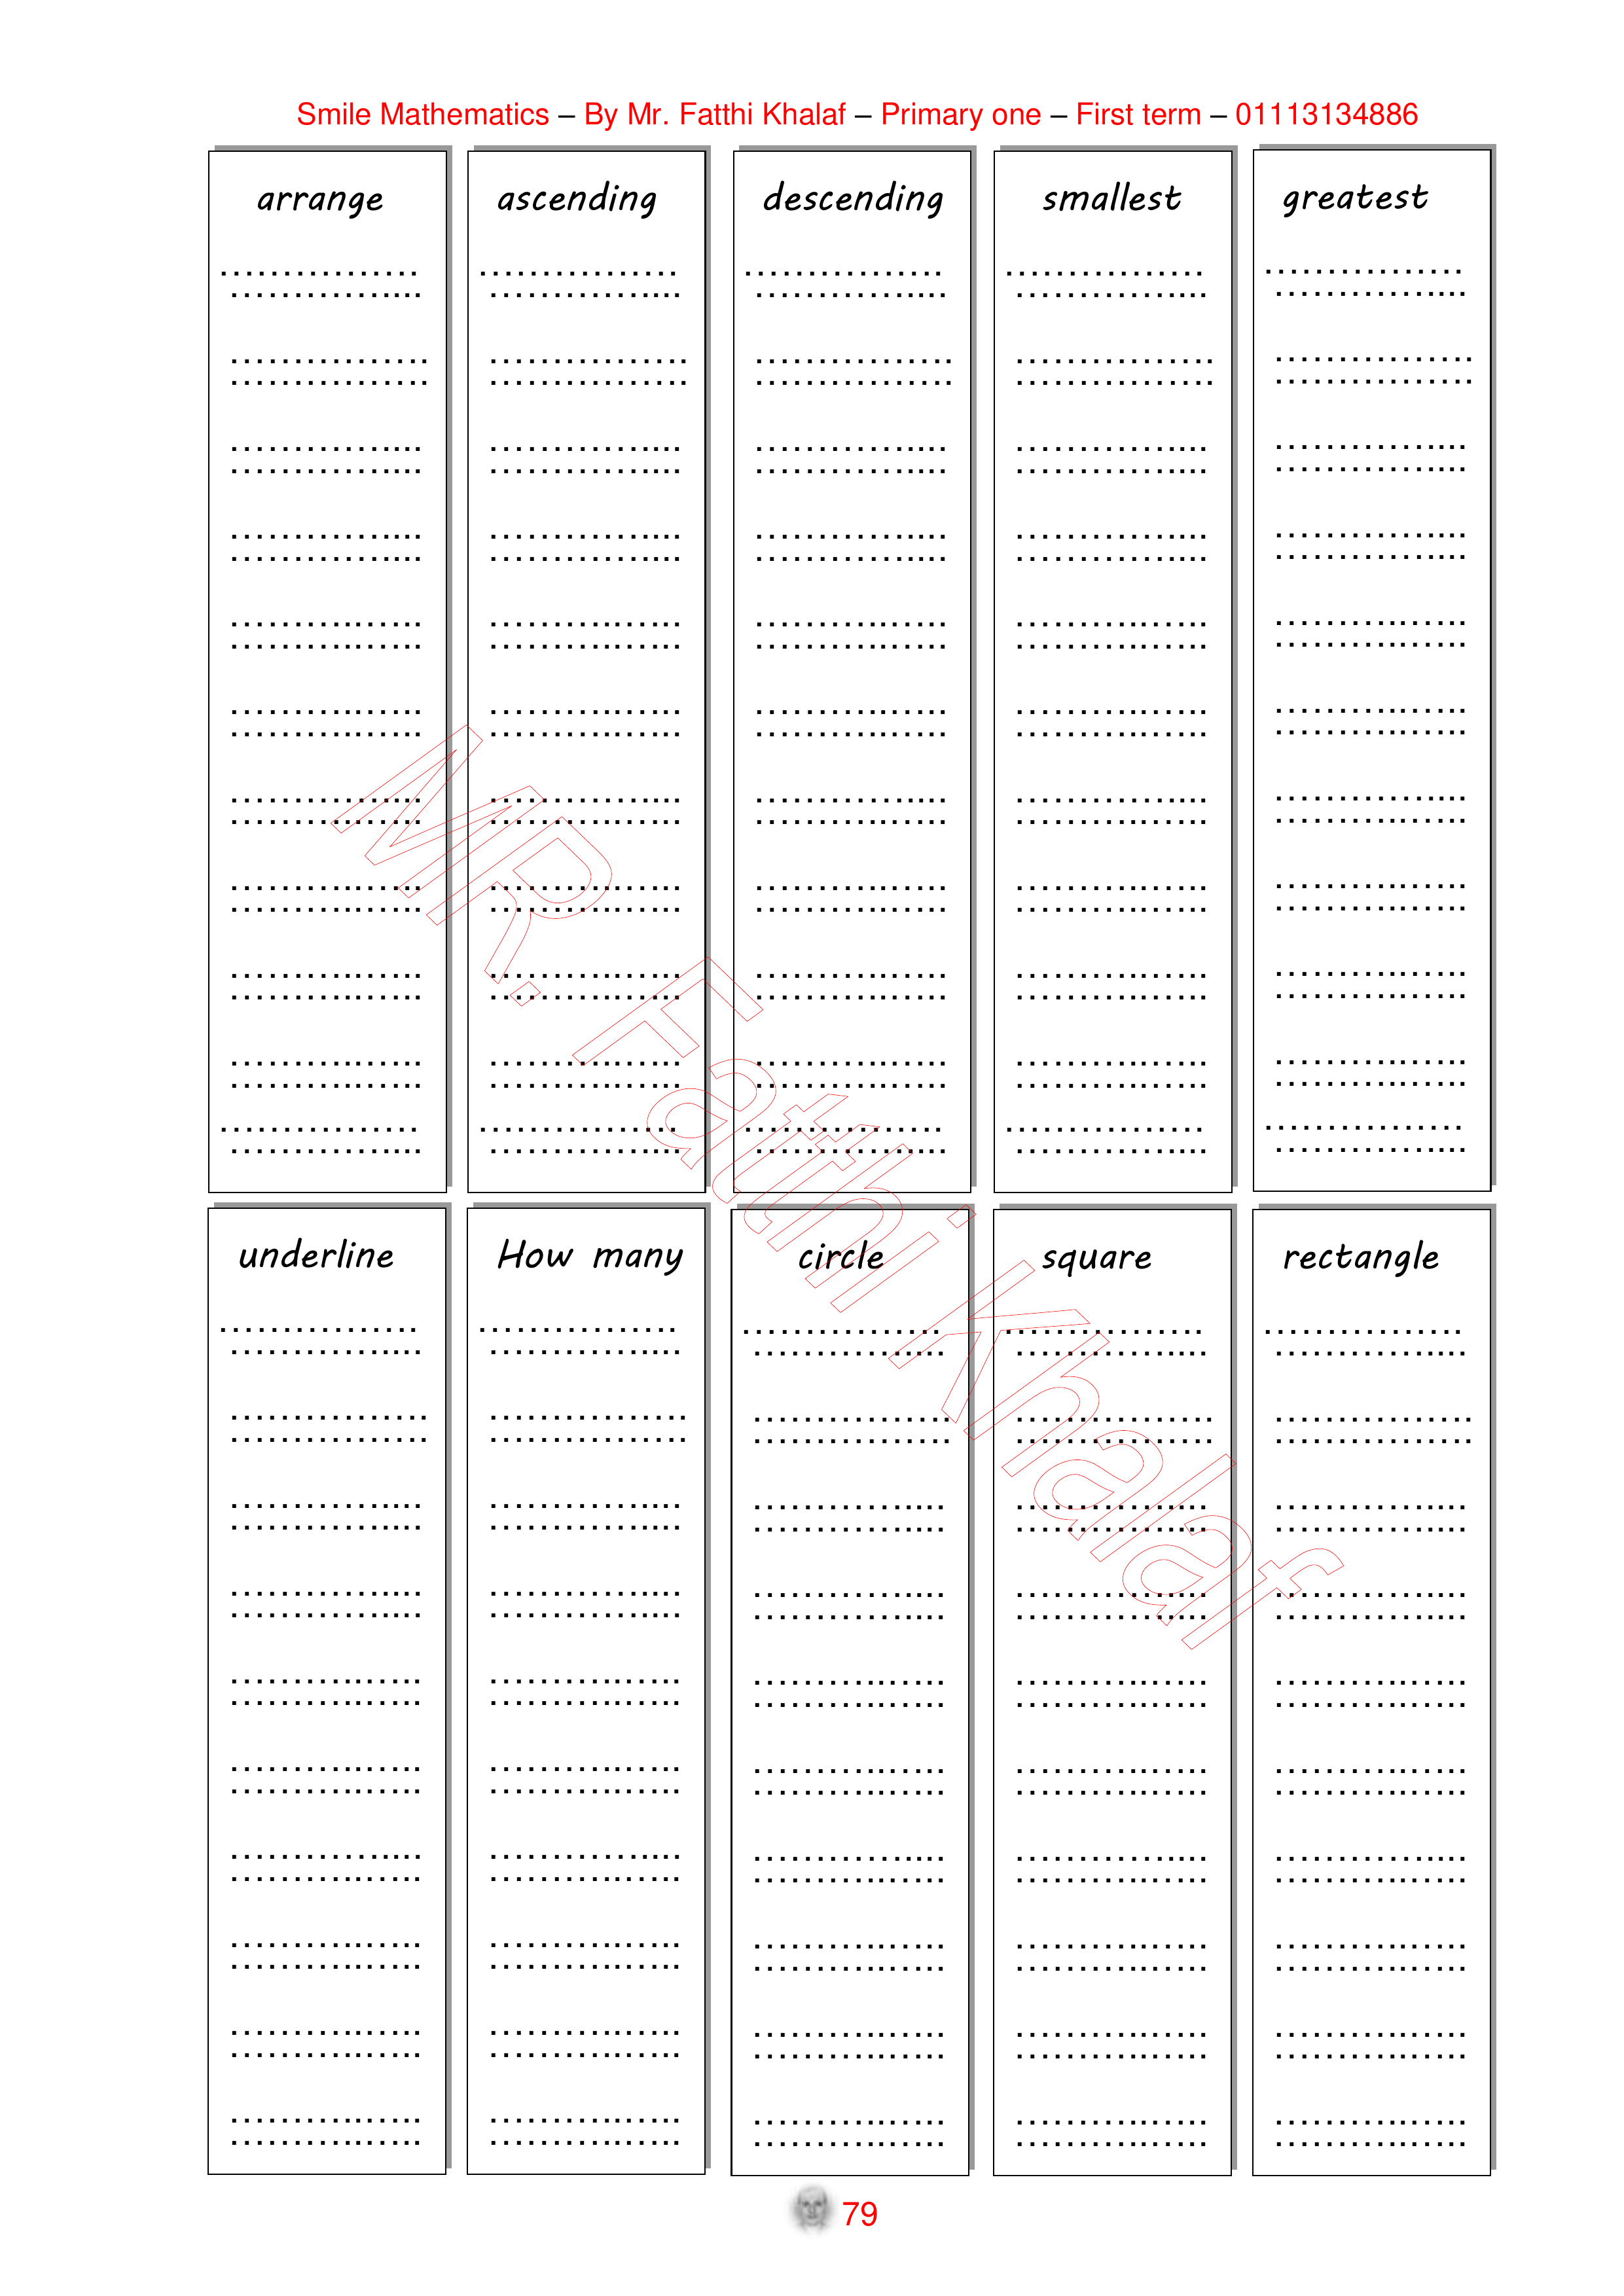 Smile Mathematics – By Mr. Fatthi Khalaf – Primary one – First term – 01113134886
arrange ascending descending smallest greatest
MR. Fathi Khalaf
underline How many circle square rectangle
79